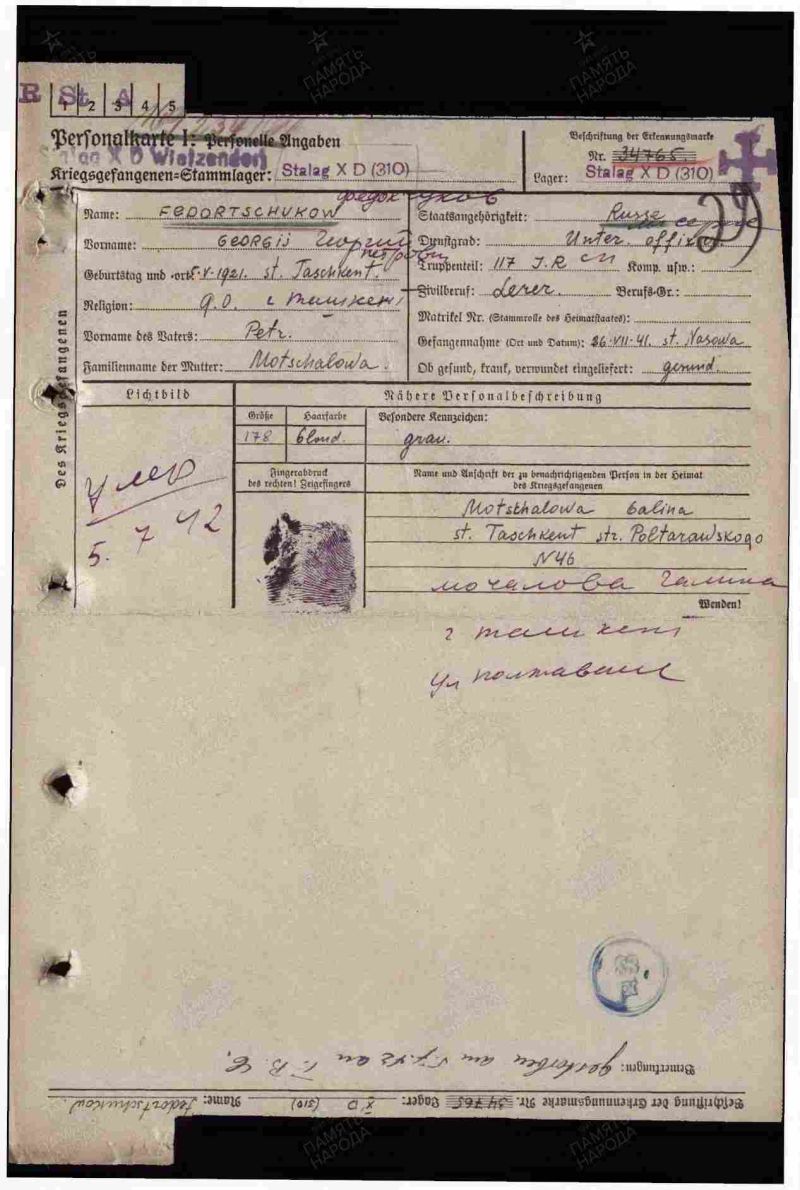 R St A
1 2 3 4 5
Personalkarte I: Personelle Angaben
Beschriftung der Erkennungsmarke
Stalag X D Wietzendorf
Nr. 34765
Kriegsgefangenen-Stammlager: Stalag X D (310)
Lager: Stalag X D (310)
Федорчуков
Des Kriegsgefangenen
Name: FEDORTSCHUKOW
Vorname: GEORGIJ Георгий
Петрович
Geburtstag und -ort: 5.V.1921. st. Taschkent.
Religion: g.O. г Ташкент
Vorname des Vaters: Petr.
Familienname der Mutter: Motschalowa.
Staatsangehörigkeit: Russe
29
Dienstgrad: Unter. offizier
Truppenteil: 117 J.R СП Komp. usw.:
Zivilberuf: Lerer. Berufs-Gr.:
Matrikel Nr. (Stammrolle des Heimatstaates):
Gefangennahme (Ort und Datum): 26.VII.41. st. Nasowa
Ob gesund, krank, verwundet eingeliefert: gesund.
Lichtbild
Nähere Personalbeschreibung
Größe Haarfarbe Besondere Kennzeichen:
178 blond. grau.
Fingerabdruck
des rechten! Zeigefingers
Name und Anschrift der zu benachrichtigenden Person in der Heimat
des Kriegsgefangenen
умер
5. 7 42
Motschalowa Galina
st. Taschkent str. Poltarawskogo
N46
Мочалова Галина
Wenden!
г Ташкент
ул
Bemerkungen: gestorben am 5.7.42 an
Beschriftung der Erkennungsmarke Nr. 34765 Lager: X D (310) Name: Fedortschukow
ПАМЯТЬ
НАРОДА